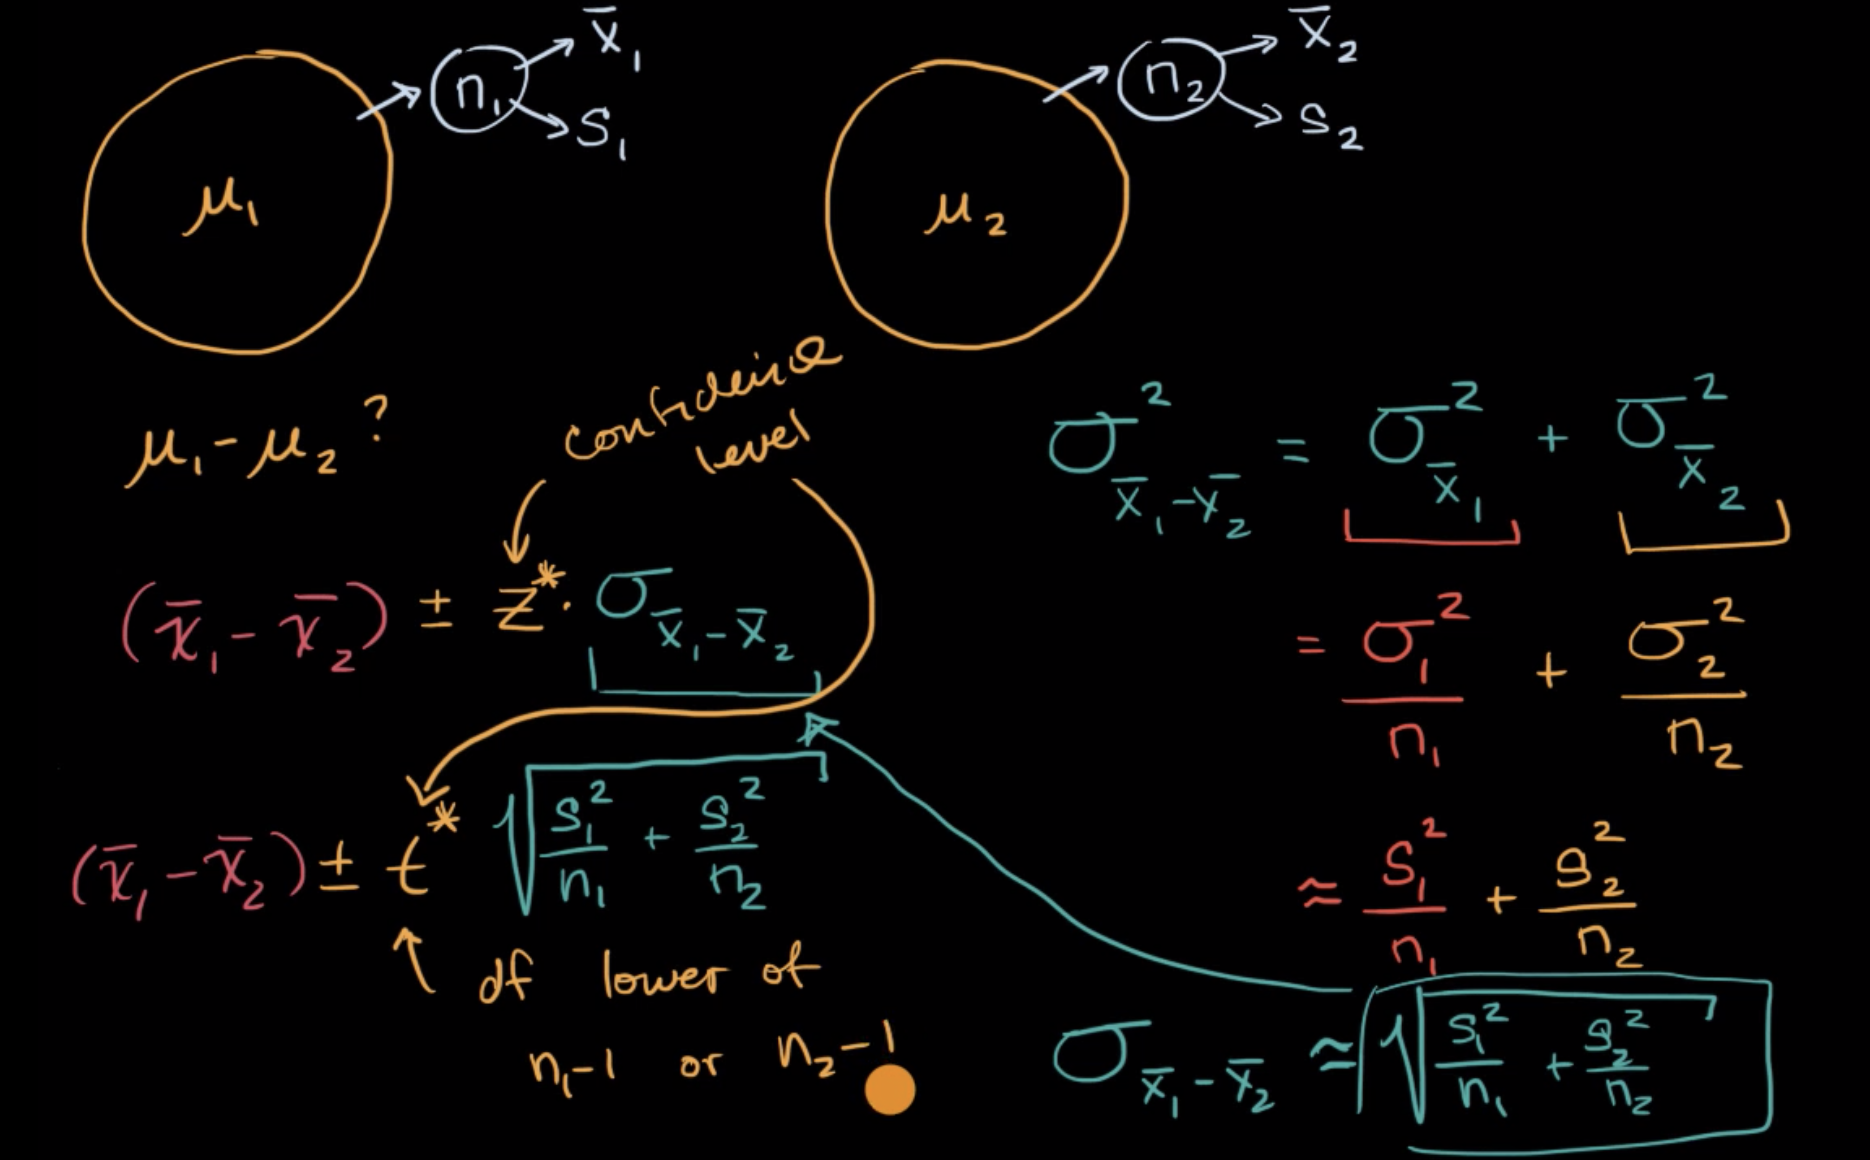 n₁ → x̄₁
→ S₁
μ₁
n₂ → x̄₂
→ S₂
μ₂
μ₁ - μ₂ ?
confidence
level
(x̄₁ - x̄₂) ± z* · σ_(x̄₁ - x̄₂)
(x̄₁ - x̄₂) ± t* √(S₁²/n₁ + S₂²/n₂)
df lower of
n₁-1 or n₂-1
σ²_(x̄₁ - x̄₂) = σ²_x̄₁ + σ²_x̄₂
= σ₁²/n₁ + σ₂²/n₂
≈ S₁²/n₁ + S₂²/n₂
σ_(x̄₁ - x̄₂) ≈ √(S₁²/n₁ + S₂²/n₂)